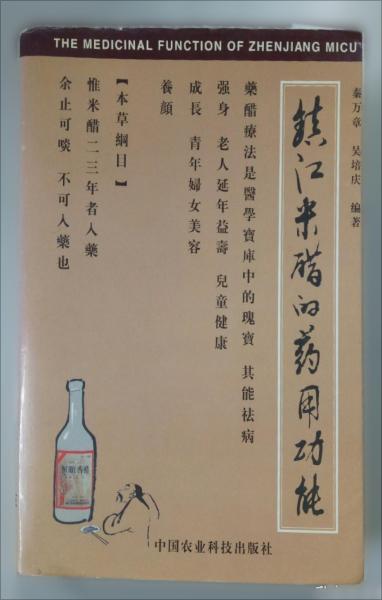 THE MEDICINAL FUNCTION OF ZHENJIANG MICU
秦万章 吴培庆 编著
鎮江米醋的药用功能
藥醋療法是醫學寶庫中的瑰寶 其能祛病
强身 老人延年益壽 兒童健康
成長 青年婦女美容
養顔
【本草綱目】
惟米醋二三年者入藥
余止可啖 不可入藥也
中国农业科技出版社